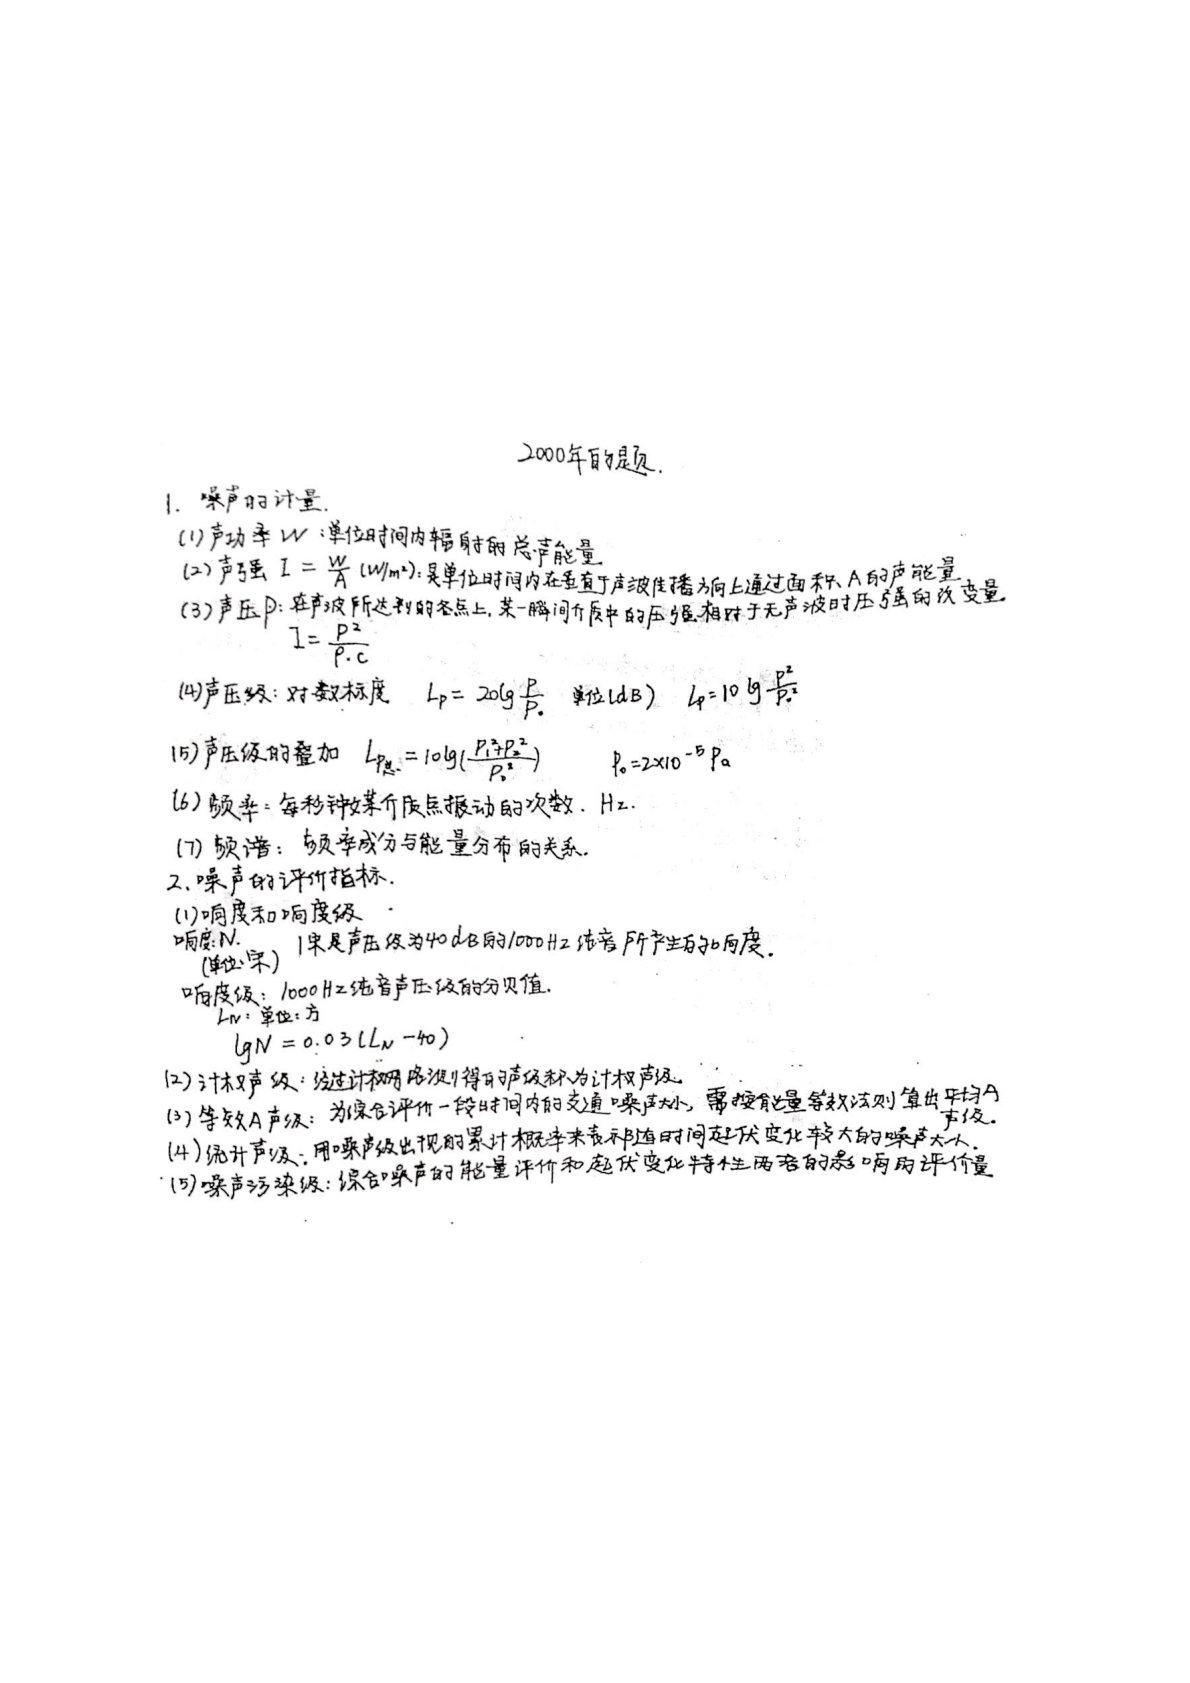 2000年的题.
1. 噪声的计量.
(1)声功率W:单位时间内辐射的总声能量
(2)声强 I = W/A (W/m²):是单位时间内在垂直于声波传播方向上通过面积A的声能量
(3)声压P:在声波所达到的各点上,某一瞬间介质中的压强相对于无声波时压强的改变量.
I = P²/ρ.c
(4)声压级:对数标度 Lp = 20lg P/P₀ 单位(dB) Lp=10 lg P²/P₀²
(5)声压级的叠加 Lp总.=10lg(P₁²+P₂²/P₀²) P₀=2×10⁻⁵Pa
(6)频率:每秒钟媒介质点振动的次数. Hz.
(7)频谱:频率成分与能量分布的关系.
2.噪声的评价指标.
(1)响度和响度级
响度:N. 1宋是声压级为40dB的1000Hz纯音所产生的响度.
(单位:宋)
响度级:1000Hz纯音声压级的分贝值.
LN:单位:方
lgN = 0.03(LN -40)
(2)计权声级:经过计权网络测得的声级称为计权声级.
(3)等效A声级:为综合评价一段时间内的交通噪声大小,需按能量等效法则算出平均A
声级.
(4)统计声级:用噪声级出现的累计概率来表示随时间起伏变化较大的噪声大小.
(5)噪声污染级:综合噪声的能量评价和起伏变化特性两者的影响的评价量